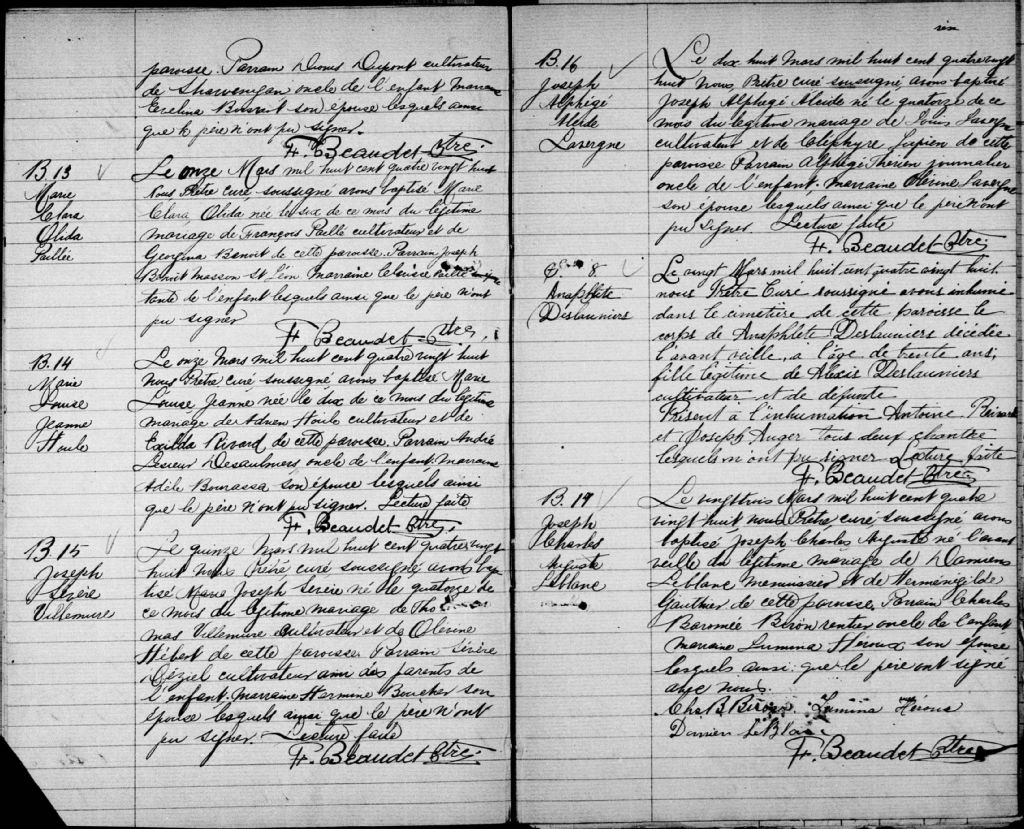 paroisse. Parrain Dionis Dupont cultivateur
de Shawenigan oncle de l'enfant Marraine
Evelina Boisvert son épouse lesquels ainsi
que le père n'ont pu signer.
F. Beaudet Ptre.
B. 13
Marie
Clara
Olida
Paillée
Le onze Mars mil huit cent quatre vingt huit
Nous Prêtre curé soussigné avons baptisé Marie
Clara Olida née le six de ce mois du légitime
mariage de François Paillé cultivateur et de
Georgina Benoit de cette paroisse. Parrain Joseph
Benoit masson St Léon Marraine
tante de l'enfant lesquels ainsi que le père n'ont
pu signer
F. Beaudet Ptre.
B. 14
Marie
Louise
Jeanne
Houle
Le onze Mars mil huit cent quatre vingt huit
Nous Prêtre curé soussigné avons baptisé Marie
Louise Jeanne née le dix de ce mois du légitime
mariage de Adrien Houle cultivateur et de
Exilda Rivard de cette paroisse. Parrain André
Lesieur Desaulniers oncle de l'enfant. Marraine
Adèle Bourassa son épouse lesquels ainsi
que le père n'ont pu signer. Lecture faite
F. Beaudet Ptre.
B 15
Joseph
Sézère
Villemure
Le quinze Mars mil huit cent quatre vingt
huit Nous Prêtre curé soussigné avons bap
tisé Marie Joseph Serère né le quatorze de
ce mois du légitime mariage de Tho
mas Villemure cultivateur et de Olérine
Hébert de cette paroisse Parrain Sérère
Déziel cultivateur ami des parents de
l'enfant, Marraine Hermine Boucher son
épouse lesquels ainsi que le père n'ont
pu signer. Lecture faite
F. Beaudet Ptre.
B. 16
Joseph
Alphégé
Aleide
Lavergne
Le dix huit Mars mil huit cent quatre vingt
huit Nous, Prêtre curé soussigné avons baptisé
Joseph Alphégé Aleide né le quatorze de ce
mois du légitime mariage de Louis Lavergne
cultivateur et de Zéléphyre Lupien de cette
paroisse Parrain Alphégé Thérien journalier
oncle de l'enfant. Marraine Olérine Lavergne
son épouse lesquels ainsi que le père n'ont
pu signer. Lecture faite
F. Beaudet Ptre.
8
Anaphlète
Deslauniers
Le vingt Mars mil huit cent quatre vingt huit.
nous Prêtre Curé soussigné avons inhumé
dans le cimetière de cette paroisse le
corps de Anaphlète Deslauniers décédée
l'avant veille, a l'âge de trente ans,
fille légitime de Alexis Deslauniers
cultivateur et de défunte
Présent à l'inhumation Antoine Rivard
et Joseph Auger tous deux chantre
lesquels n'ont pu signer Lecture faite
F. Beaudet Ptre.
B. 17
Joseph
Charles
Auguste
Leblanc
Le vingt trois Mars mil huit cent quatre
vingt huit nous Prêtre curé soussigné avons
baptisé Joseph Charles Auguste né l'avant
veille du légitime mariage de Damiens
Leblanc menuisier et de Herménégilde
Gauthier de cette paroisse, Parrain Charles
Baromée Biron rentier oncle de l'enfant
Marraine Lumina Héroux son épouse
lesquels ainsi que le père ont signé
avec nous.
Chs B. Biron Lumina Héroux
Damien LeBlanc
F. Beaudet Ptre